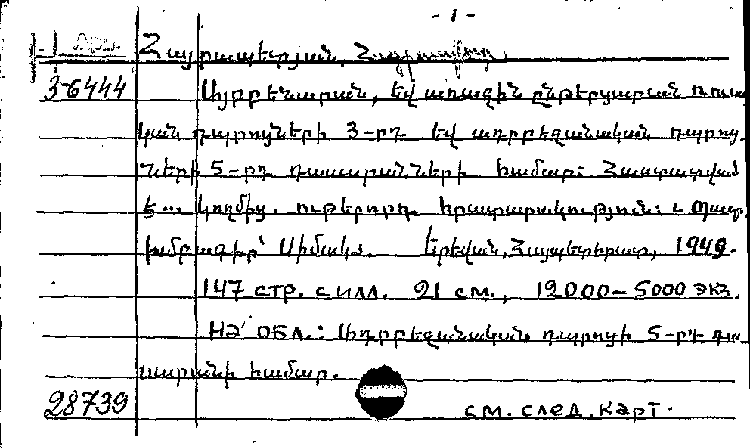 - 1 -
Հայրապետյան, Հայրապետ
3-6444 Այբբենարան, եվ առաջին ընթերցարան ռուսա
կան դպրոցների 3-րդ եվ ադրբեջանական դպրոց
ների 5-րդ դասարանների համար: Հաստատված
է... կողմից. ութերորդ հրատարակություն:
խմբագիր՝ Սիմակ. Երեվան, Հայպետհրատ, 1949.
147 стр. с илл. 21 см., 12000-5000 экз.
На обл.: Ադրբեջանական դպրոցի 5-րդ դա
սարանի համար.
28739 см. след. карт.